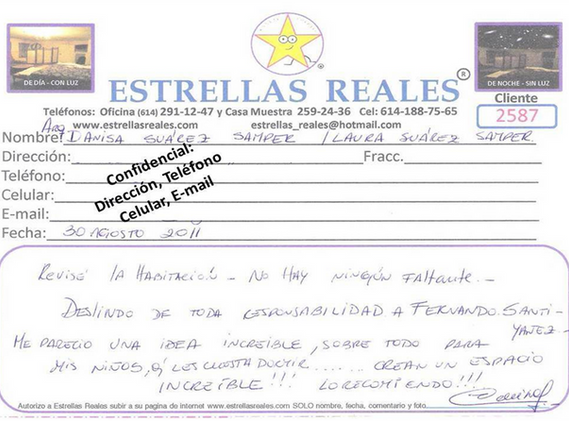 DE DÍA - CON LUZ
DE NOCHE - SIN LUZ
ESTRELLAS REALES®
Cliente
2587
Teléfonos: Oficina (614) 291-12-47 y Casa Muestra 259-24-36 Cel: 614-188-75-65
www.estrellasreales.com estrellas_reales@hotmail.com
Nombre: Arq. DANISA SUÁREZ SAMPER / LAURA SUÁREZ SAMPER.
Dirección: Fracc.
Teléfono:
Celular:
E-mail:
Confidencial:
Dirección, Teléfono
Celular, E-mail
Fecha: 30 AGOSTO 2011
REVISÉ LA HABITACIÓN - NO HAY NINGÚN FALTANTE.-
DESLINDO DE TODA RESPONSABILIDAD A FERNANDO SANTI-
YANEZ-
ME PARECIO UNA IDEA INCREIBLE, SOBRE TODO PARA
MIS NIÑOS, Q' LES CUESTA DORMIR...... CREAN UN ESPACIO
INCREÍBLE!!! LO RECOMIENDO!!!
Autorizo a Estrellas Reales subir a su pagina de internet www.estrellasreales.com SOLO nombre, fecha, comentario y foto